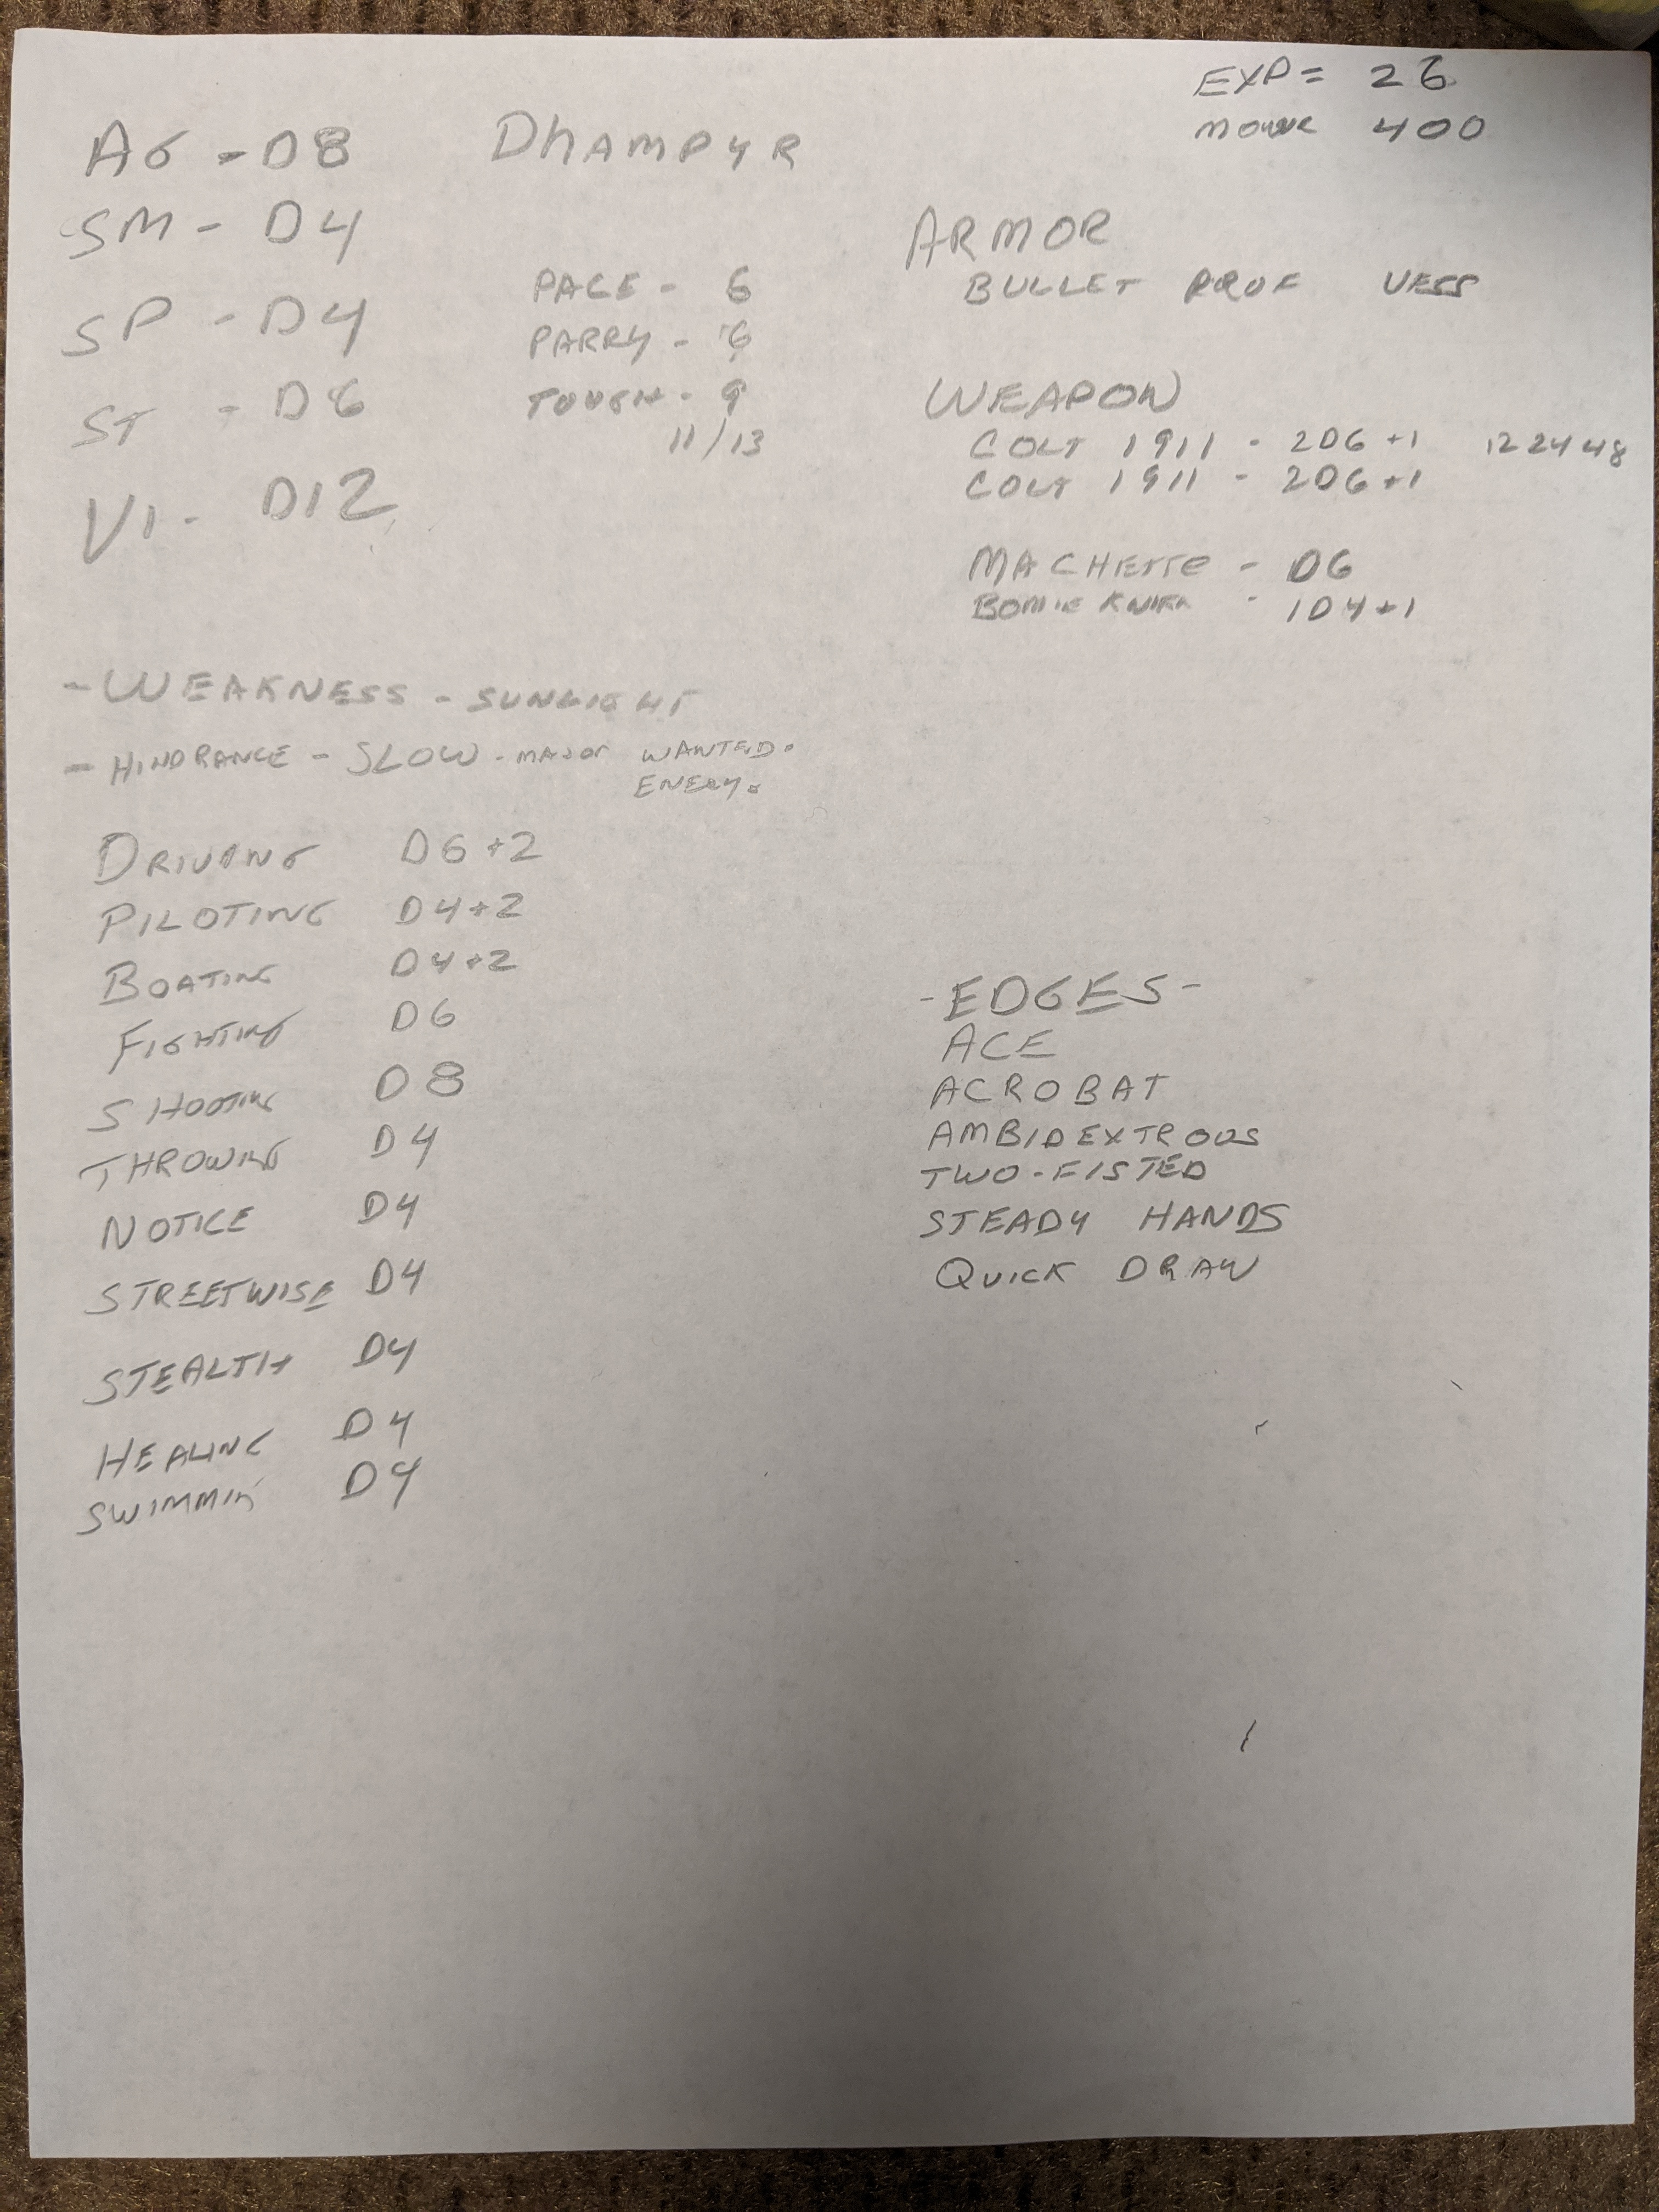 EXP = 26
400
AG - D8
DhAMPYR
SM - D4
SP - D4
ST - D6
VI - D12
PACE - 6
PARRY - 6
TOUGH - 9
11/13
ARMOR
BULLET PROF VESS
WEAPON
COLT 1911 - 2D6+1 12 24 48
COLT 1911 - 2D6+1
MACHETTE - D6
BOWIE KNIFE - 1D4+1
- WEAKNESS - SUNLIGHT
- HINDRANCE - SLOW - MAJOR WANTED.
ENEMY.
DRIVING D6+2
PILOTING D4+2
BOATING D4+2
FIGHTING D6
SHOOTING D8
THROWING D4
NOTICE D4
STREETWISE D4
STEALTH D4
HEALING D4
SWIMMIN D4
- EDGES -
ACE
ACROBAT
AMBIDEXTROUS
TWO-FISTED
STEADY HANDS
QUICK DRAW